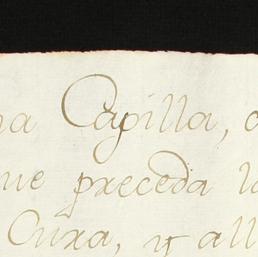 na Capilla,
que preceda
Cura, y all